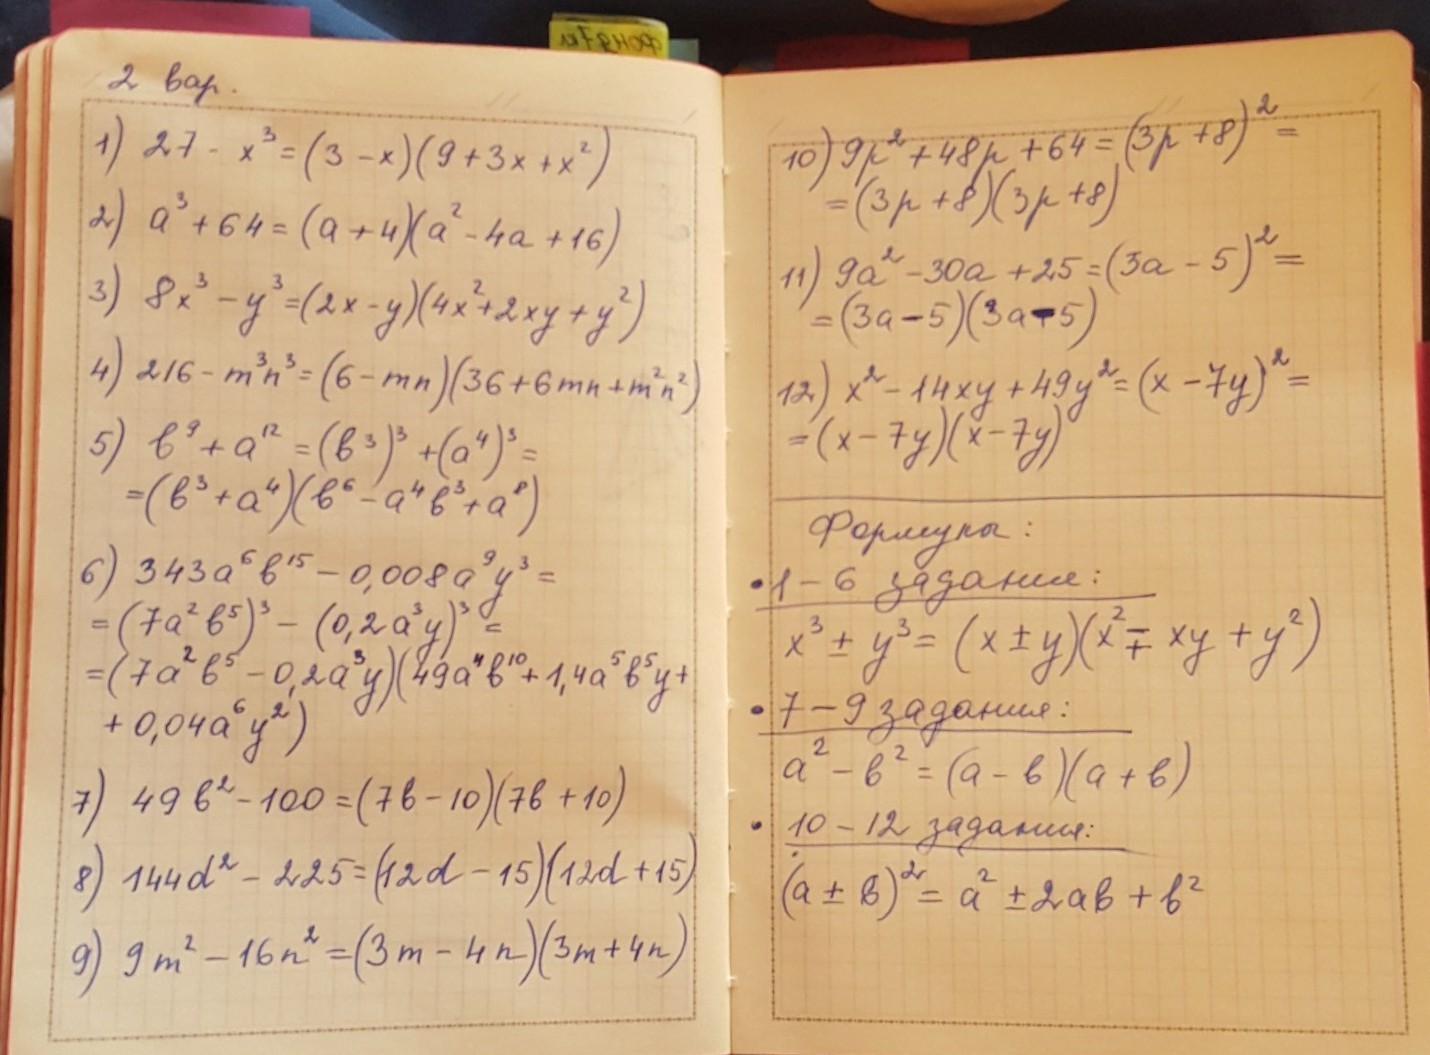 фонд 7кл
2 вар.
1) 27 - x³ = (3 - x)(9 + 3x + x²)
2) a³ + 64 = (a + 4)(a² - 4a + 16)
3) 8x³ - y³ = (2x - y)(4x² + 2xy + y²)
4) 216 - m³n³ = (6 - mn)(36 + 6mn + m²n²)
5) в⁹ + a¹² = (в³)³ + (a⁴)³ =
= (в³ + a⁴)(в⁶ - a⁴в³ + a⁸)
6) 343a⁶в¹⁵ - 0,008a⁹y³ =
= (7a²в⁵)³ - (0,2a³y)³ =
= (7a²в⁵ - 0,2a³y)(49a⁴в¹⁰ + 1,4a⁵в⁵y +
+ 0,04a⁶y²)
7) 49в² - 100 = (7в - 10)(7в + 10)
8) 144d² - 225 = (12d - 15)(12d + 15)
9) 9m² - 16n² = (3m - 4n)(3m + 4n)
10) 9p² + 48p + 64 = (3p + 8)² =
= (3p + 8)(3p + 8)
11) 9a² - 30a + 25 = (3a - 5)² =
= (3a - 5)(3a - 5)
12) x² - 14xy + 49y² = (x - 7y)² =
= (x - 7y)(x - 7y)
Формулы:
• 1 - 6 задания:
x³ ± y³ = (x ± y)(x² ∓ xy + y²)
• 7 - 9 задания:
a² - в² = (a - в)(a + в)
• 10 - 12 задания:
(a ± в)² = a² ± 2aв + в²